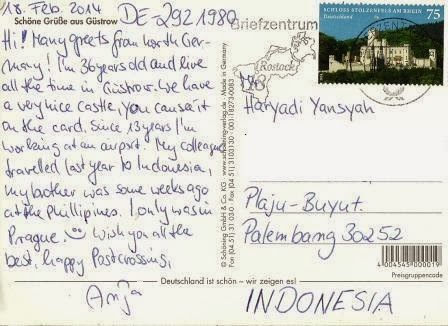 18. Feb. 2014
Schöne Grüße aus Güstrow
DE-2921980
Hi! Many greets from north Ger-
many! I'm 36 years old and live
all the time in Güstrow. We have
a very nice castle, you can see it
on the card. Since 13 years I'm
working at an airport. My colleague
travelled last year to Indonesia,
my brother was some weeks ago
at the Phillipines. I only was in
Prague. Wish you all the
best, happy Postcrossing,
Anja
© Schöning GmbH & Co. KG • www.schoening-verlag.de • Made in Germany
Briefzentrum
Rostock
SCHLOSS STOLZENFELS AM RHEIN 75
Deutschland
Haryadi Yansyah
Plaju-Buyut.
Palembang 30252
INDONESIA
4 004545 000019
Preisgruppencode
Deutschland ist schön – wir zeigen es!